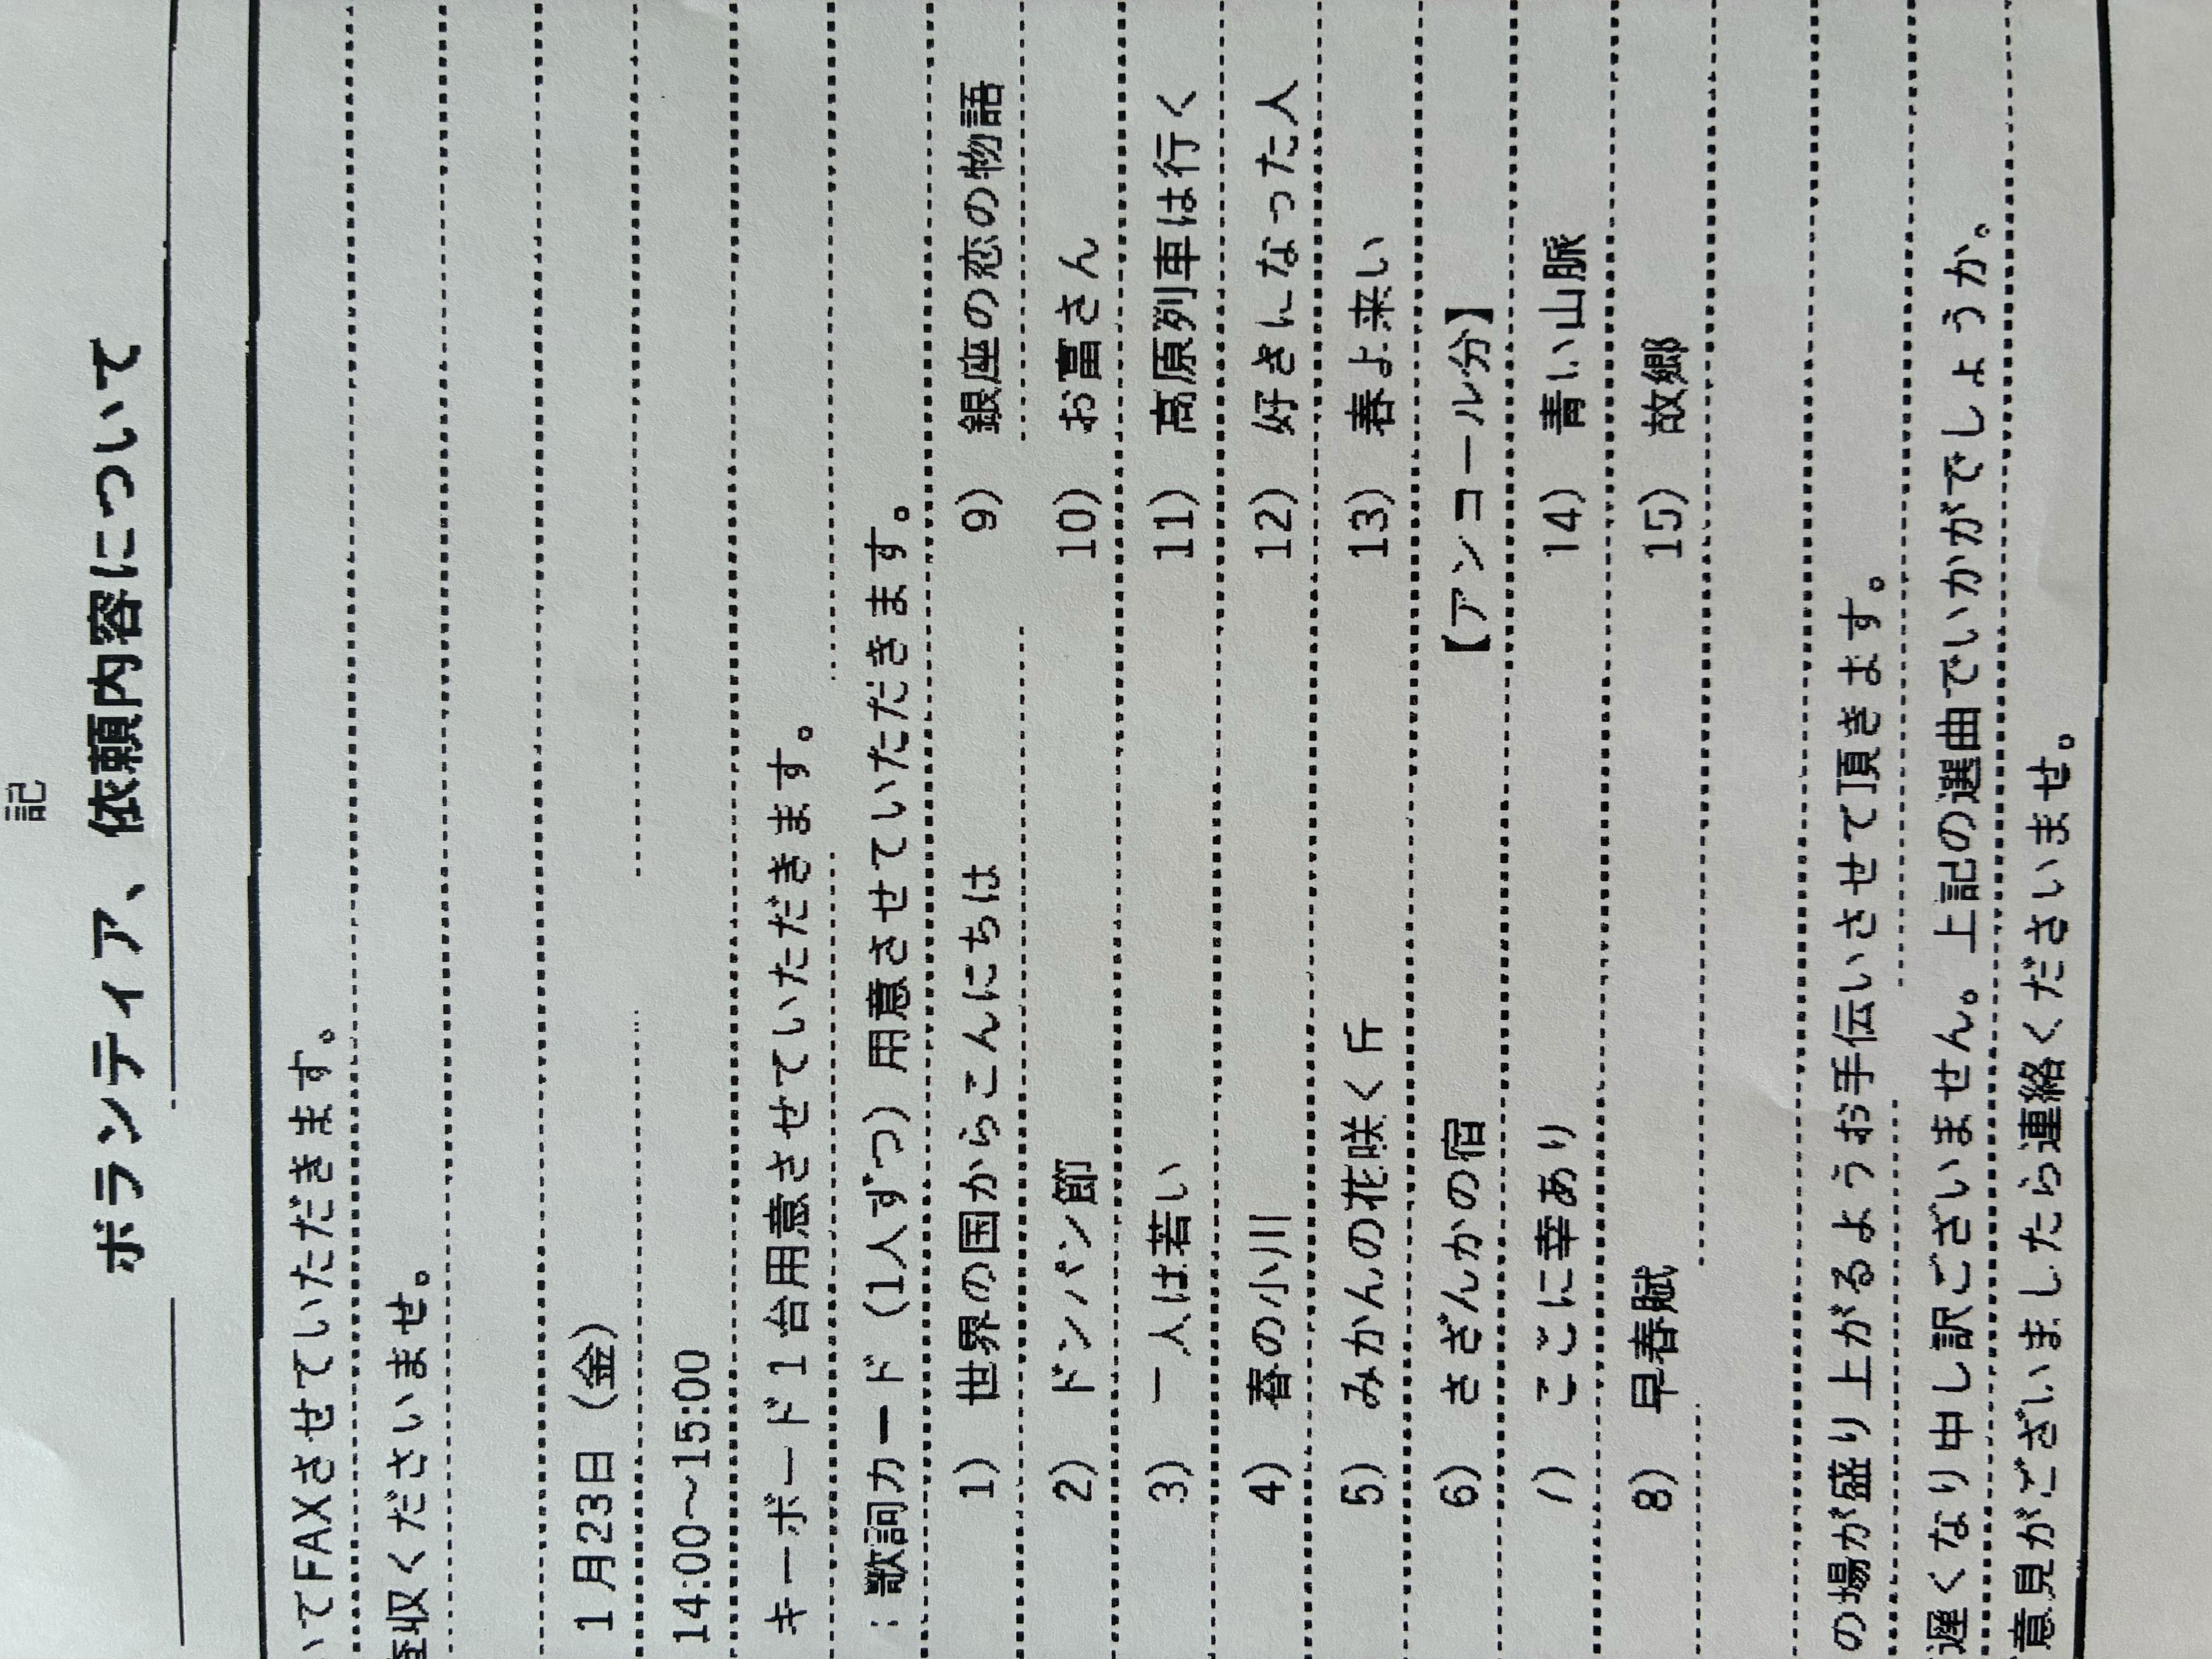 記
ボランティア、依頼内容について
いてFAXさせていただきます。
査収くださいませ。
1月23日（金）
14:00～15:00
キーボード1台用意させていただきます。
：歌詞カード（1人ずつ）用意させていただきます。
1） 世界の国からこんにちは 9） 銀座の恋の物語
2） ドンパン節 10） お富さん
3） 一人は若い 11） 高原列車は行く
4） 春の小川 12） 好きになった人
5） みかんの花咲く丘 13） 春よ来い
6） さざんかの宿 【アンコール分】
7） ここに幸あり 14） 青い山脈
8） 早春賦 15） 故郷
の場が盛り上がるようお手伝いさせて頂きます。
遅くなり申し訳ございません。上記の選曲でいかがでしょうか。
意見がございましたら連絡くださいませ。